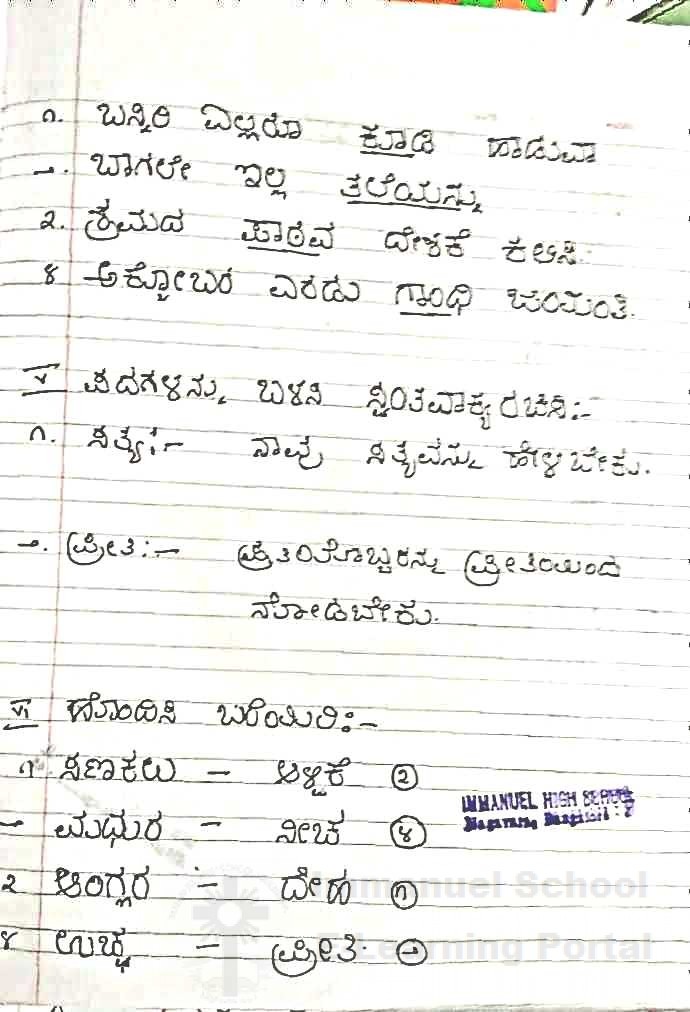 ೧. ಬನ್ನಿರಿ ಎಲ್ಲರೂ ಕೂಡಿ ಹಾಡುವಾ
೨. ಬಾಗಲೇ ಇಲ್ಲ ತಲೆಯನ್ನು
೩. ಶ್ರಮದ ಪಾಠವ ದೇಶಕೆ ಕಲಿಸಿ.
೪ ಅಕ್ಟೋಬರ ಎರಡು ಗಾಂಧಿ ಜಯಂತಿ.
V ಪದಗಳನ್ನು ಬಳಸಿ ಸ್ವಂತವಾಕ್ಯ ರಚಿಸಿ:-
೧. ಸತ್ಯ:- ನಾವು ಸತ್ಯವನ್ನು ಹೇಳಬೇಕು.
೨. ಪ್ರೀತಿ:- ಪ್ರತಿಯೊಬ್ಬರನ್ನು ಪ್ರೀತಿಯಿಂದ
ನೋಡಬೇಕು.
VI ಹೊಂದಿಸಿ ಬರೆಯಿರಿ:-
೧ ಸಣಕಲು - ಆಳ್ವಿಕೆ ೩
೨ ಮಧುರ - ನೀಚ ೪
IMMANUEL HIGH SCHOOL
೩ ಆಂಗ್ಲರ - ದೇಹ ೧
Immanuel School
೪ ಉಚ್ಚ - ಪ್ರೀತಿ ೨
E-Learning Portal